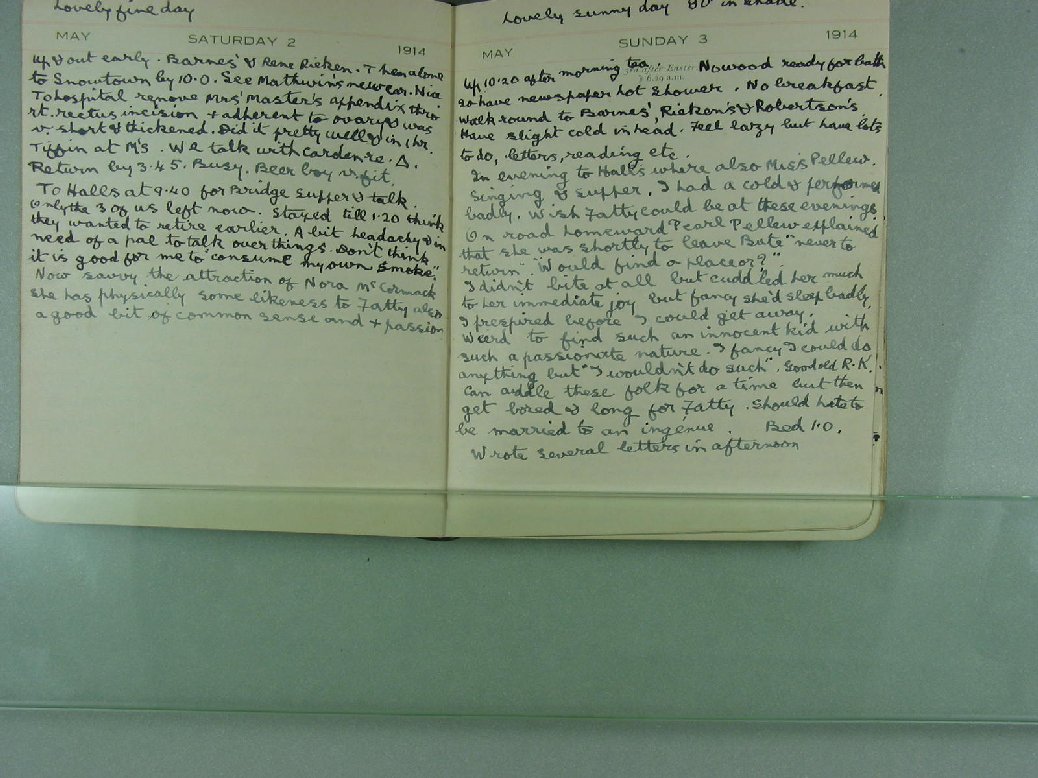 Lovely fine day
MAY SATURDAY 2 1914
Up & out early. Barnes' & Rene Rieken. Then alone
to Snowtown by 10.0. See Mathwin's new car. Nice
To hospital remove Mrs Master's appendix thro
rt. rectus incision + adherent to ovary & was
v. short & thickened. Did it pretty well in 1 hr.
Tiffin at M's. We talk with Carden re. Δ.
Return by 3.45. Busy. Beer boy v. fit.
To Halls at 9.40 for Bridge supper & talk.
Only the 3 of us left now. Stayed till 1.20 think
they wanted to retire earlier. A bit headachy & in
need of a pal to talk over things. Don't think
it is good for me to consume "my own smoke"
Now savvy the attraction of Nora McCormack
she has physically some likeness to Fatty also
a good bit of common sense and + passion
Lovely sunny day 80° in shade.
MAY SUNDAY 3 1914
Up 10.20 after morning tea. No wood ready for bath
so have newspaper hot shower. No breakfast.
Walk round to Barnes', Rieken's & Robertson's
Have slight cold in head. Feel lazy but have lots
to do, letters, reading etc.
In evening to Halls where also Miss Pellew.
Singing & supper. I had a cold & performed
badly. Wish Fatty could be at these evenings
On road homeward Pearl Pellew explained
that she was shortly to leave Bute "never to
return". "Would find a place or?"
I didn't bite at all but cuddled her much
to her immediate joy but fancy she'd sleep badly,
I prespired before I could get away.
Weird to find such an innocent kid with
such a passionate nature. I fancy I could do
anything but "I wouldn't do such". Good old R.K.
Can these folk for a time but then
get bored & long for Fatty. Should hate to
be married to an ingénue. Bed 1.0.
Wrote several letters in afternoon